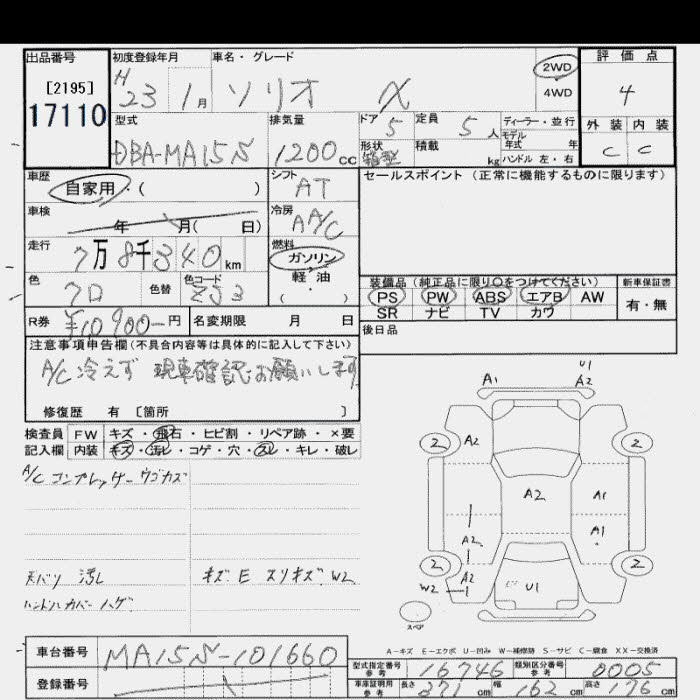 出品番号 初度登録年月 車名・グレード 2WD 評価点
[2195] H 23 1月 ソリオ X 4WD 4
17110 型式 排気量 ドア 定員 ディーラー・並行 外装 内装
DBA-MA15S 1200cc 5 5人 モデル年式 年 C C
形状 積載 kg ハンドル 左・右
箱型
車歴 シフト セールスポイント (正常に機能するものに限ります)
自家用・( ) AT
車検 冷房
年 月( 日) AA/C
走行 燃料
7万8千340km ガソリン
色 色替 色コード 軽・油 装備品(純正品に限り○をつけてください) 新車保証書
クロ ZJ3 ( ・ ) PS PW ABS エアB AW 有・無
SR ナビ TV カワ
R券 ¥10900-円 名変期限 月 日 後日品
注意事項申告欄(不具合内容等は具体的に記入して下さい)
A/C 冷えず 現車確認お願いします
修復歴 有 〔箇所 〕
検査員 FW キズ・飛石・ヒビ割・リペア跡・×要
記入欄 内装 キズ・汚レ・コゲ・穴・スレ・キレ・破レ
A/C コンプレッサー ウゴカズ
天バリ 汚レ キズ E スリキズ W2
ハンドルカバー ハゲ
A1 U1
A2
2 A2 2
A2 A1
A1
A2
2 A2 2
W2 U1
スペア
A-キズ E-エクボ U-凹み W-補修跡 S-サビ C-腐食 XX-交換済
車台番号 MA15S-101660
登録番号
型式指定番号 参考 16746 類別区分番号 参考 0005
車庫証明用 参考 長さ 371cm 幅 162cm 高さ 176cm